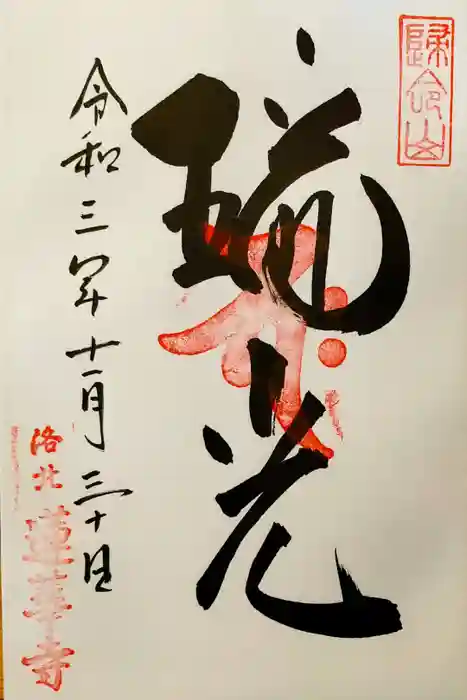 歸命山
琉光
令和三年十一月三十日
洛北
蓮華寺